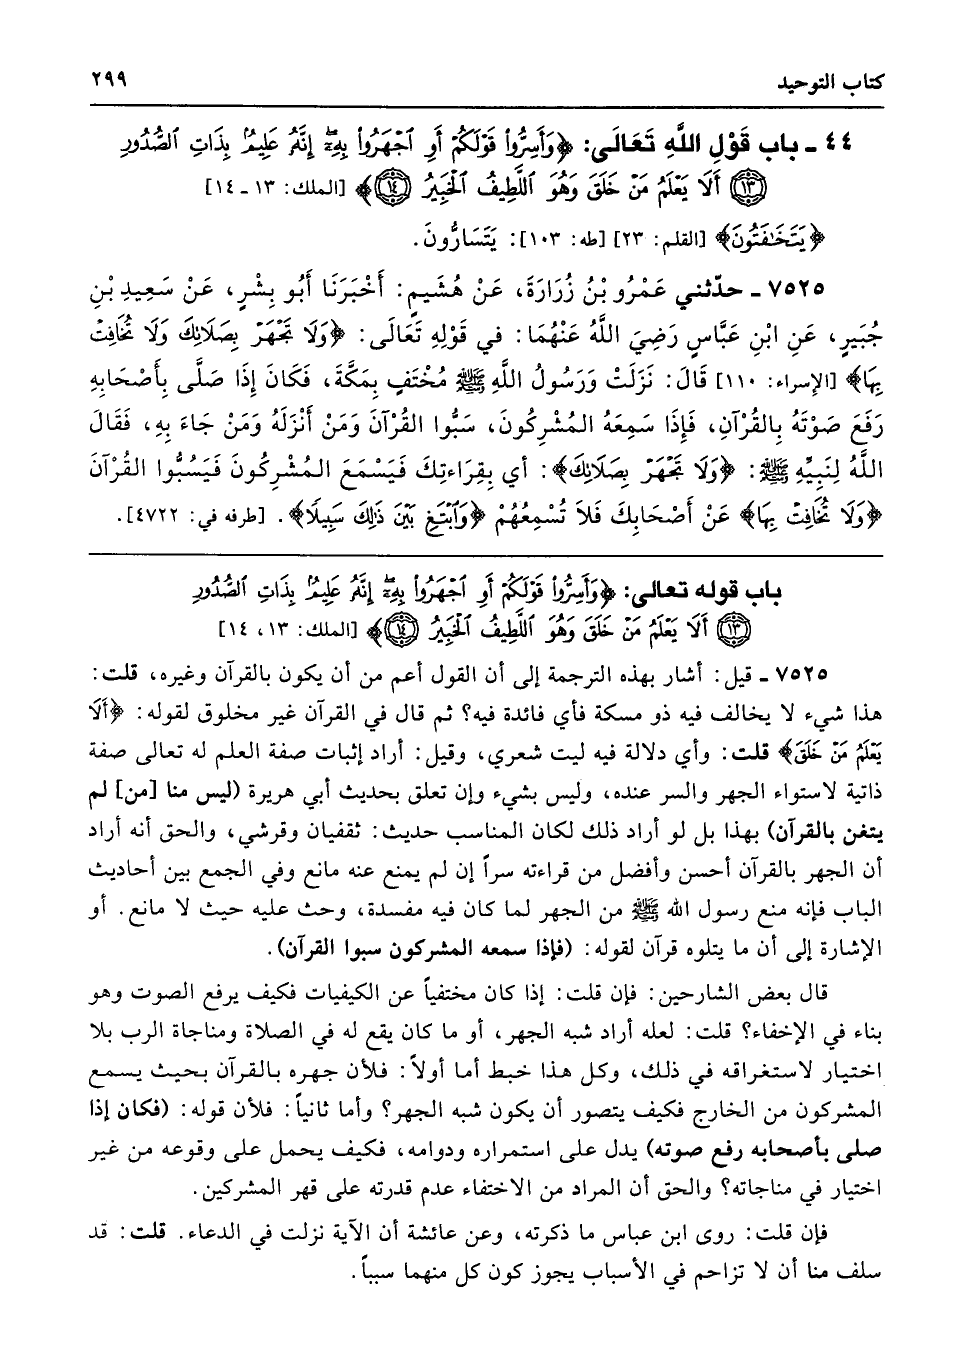 كتاب التوحيد
٢٩٩
٤٤ ـ باب قَوْلِ اللَّهِ تَعَالَى: ﴿وَأَسِرُّوا۟ قَوْلَكُمْ أَوِ ٱجْهَرُوا۟ بِهِۦٓ إِنَّهُۥ عَلِيمٌۢ بِذَاتِ ٱلصُّدُورِ
﴿١٣﴾ أَلَا يَعْلَمُ مَنْ خَلَقَ وَهُوَ ٱللَّطِيفُ ٱلْخَبِيرُ ﴿١٤﴾﴾ [الملك: ١٣ ـ ١٤]
﴿يَتَخَـٰفَتُونَ﴾ [القلم: ٢٣] [طه: ١٠٣]: يَتَسَارُّونَ.
٧٥٢٥ ـ حدّثني عَمْرُو بْنُ زُرَارَةَ، عَنْ هُشَيمٍ: أَخْبَرَنَا أَبُو بِشْرٍ، عَنْ سَعِيدِ بْنِ
جُبَيرٍ، عَنِ ابْنِ عَبَّاسٍ رَضِيَ اللَّهُ عَنْهُمَا: في قَوْلِهِ تَعَالَى: ﴿وَلَا تَجْهَرْ بِصَلَاتِكَ وَلَا تُخَافِتْ
بِهَا﴾ [الإسراء: ١١٠] قَالَ: نَزَلَتْ وَرَسُولُ اللَّهِ ﷺ مُخْتَفٍ بِمَكَّةَ، فَكَانَ إِذَا صَلَّى بِأَصْحَابِهِ
رَفَعَ صَوْتَهُ بِالقُرْآنِ، فَإِذَا سَمِعَهُ المُشْرِكُونَ، سَبُّوا القُرْآنَ وَمَنْ أَنْزَلَهُ وَمَنْ جَاءَ بِهِ، فَقَالَ
اللَّهُ لِنَبِيِّهِ ﷺ: ﴿وَلَا تَجْهَرْ بِصَلَاتِكَ﴾: أي بِقِرَاءَتِكَ فَيَسْمَعَ المُشْرِكُونَ فَيَسُبُّوا القُرْآنَ
﴿وَلَا تُخَافِتْ بِهَا﴾ عَنْ أَصْحَابِكَ فَلاَ تُسْمِعُهُمْ ﴿وَٱبْتَغِ بَيْنَ ذَٰلِكَ سَبِيلًا﴾. [طرفه في: ٤٧٢٢].
باب قوله تعالى: ﴿وَأَسِرُّوا۟ قَوْلَكُمْ أَوِ ٱجْهَرُوا۟ بِهِۦٓ إِنَّهُۥ عَلِيمٌۢ بِذَاتِ ٱلصُّدُورِ
﴿١٣﴾ أَلَا يَعْلَمُ مَنْ خَلَقَ وَهُوَ ٱللَّطِيفُ ٱلْخَبِيرُ ﴿١٤﴾﴾ [الملك: ١٣، ١٤]
٧٥٢٥ ـ قيل: أشار بهذه الترجمة إلى أن القول أعم من أن يكون بالقرآن وغيره، قلت:
هذا شيء لا يخالف فيه ذو مسكة فأي فائدة فيه؟ ثم قال في القرآن غير مخلوق لقوله: ﴿أَلَا
يَعْلَمُ مَنْ خَلَقَ﴾ قلت: وأي دلالة فيه ليت شعري، وقيل: أراد إثبات صفة العلم له تعالى صفة
ذاتية لاستواء الجهر والسر عنده، وليس بشيء وإن تعلق بحديث أبي هريرة (ليس منا [من] لم
يتغن بالقرآن) بهذا بل لو أراد ذلك لكان المناسب حديث: ثقفيان وقرشي، والحق أنه أراد
أن الجهر بالقرآن أحسن وأفضل من قراءته سراً إن لم يمنع عنه مانع وفي الجمع بين أحاديث
الباب فإنه منع رسول الله ﷺ من الجهر لما كان فيه مفسدة، وحث عليه حيث لا مانع. أو
الإشارة إلى أن ما يتلوه قرآن لقوله: (فإذا سمعه المشركون سبوا القرآن).
قال بعض الشارحين: فإن قلت: إذا كان مختفياً عن الكيفيات فكيف يرفع الصوت وهو
بناء في الإخفاء؟ قلت: لعله أراد شبه الجهر، أو ما كان يقع له في الصلاة ومناجاة الرب بلا
اختيار لاستغراقه في ذلك، وكل هذا خبط أما أولاً: فلأن جهره بالقرآن بحيث يسمع
المشركون من الخارج فكيف يتصور أن يكون شبه الجهر؟ وأما ثانياً: فلأن قوله: (فكان إذا
صلى بأصحابه رفع صوته) يدل على استمراره ودوامه، فكيف يحمل على وقوعه من غير
اختيار في مناجاته؟ والحق أن المراد من الاختفاء عدم قدرته على قهر المشركين.
فإن قلت: روى ابن عباس ما ذكرته، وعن عائشة أن الآية نزلت في الدعاء. قلت: قد
سلف منا أن لا تزاحم في الأسباب يجوز كون كل منهما سبباً.